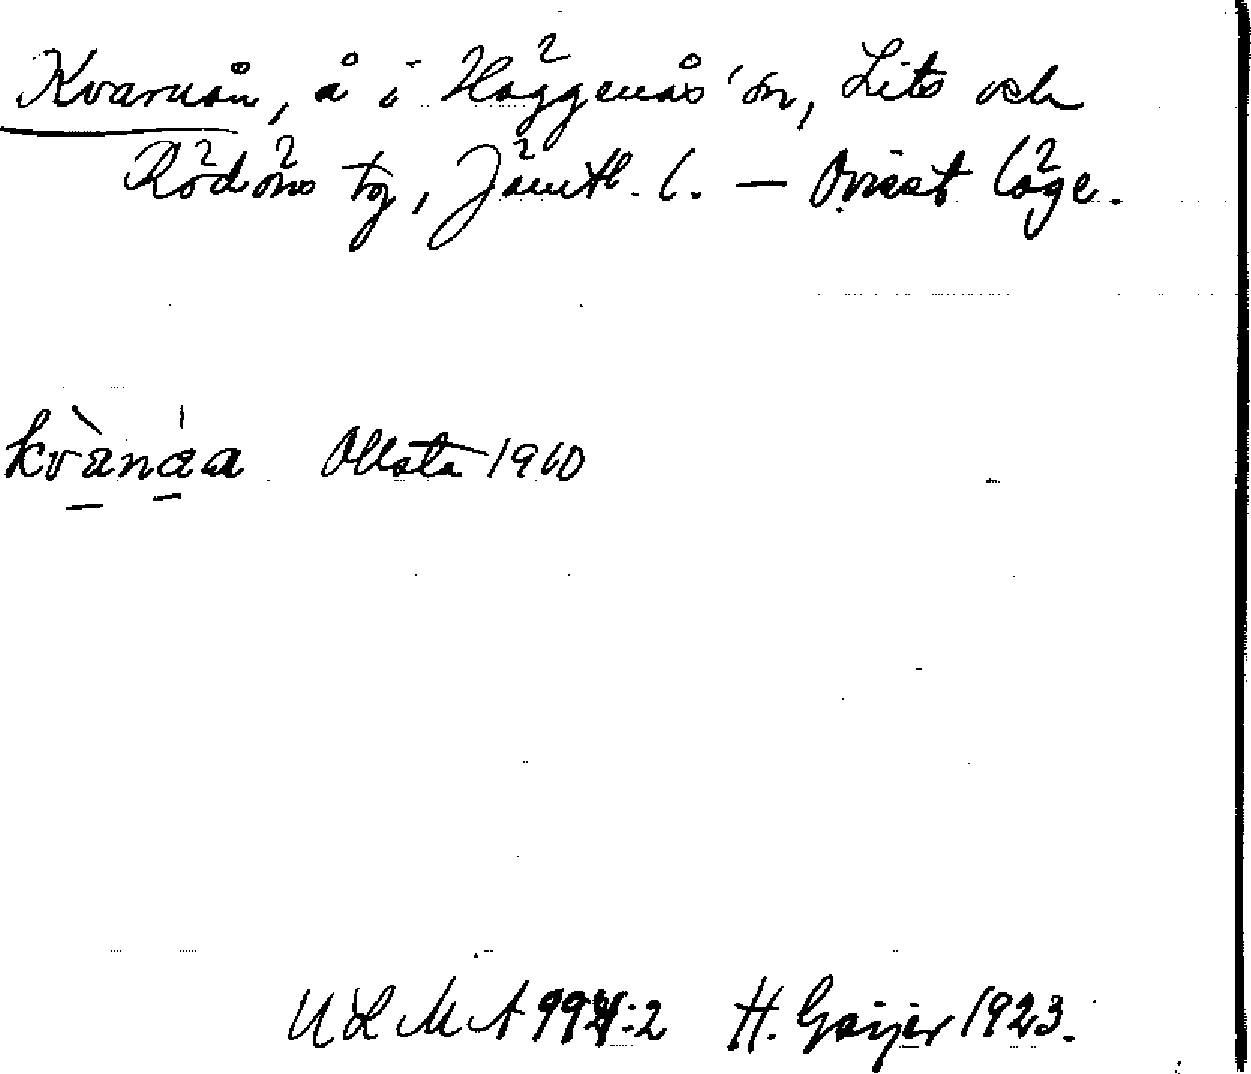 Kvarnån, å i Häggenås sn, Lits och
Rödöns tg, Jämtl. l. — Ovisst läge.
kvànáa Ollsta 1910
ULMA 994:2 H. Geijer 1923.